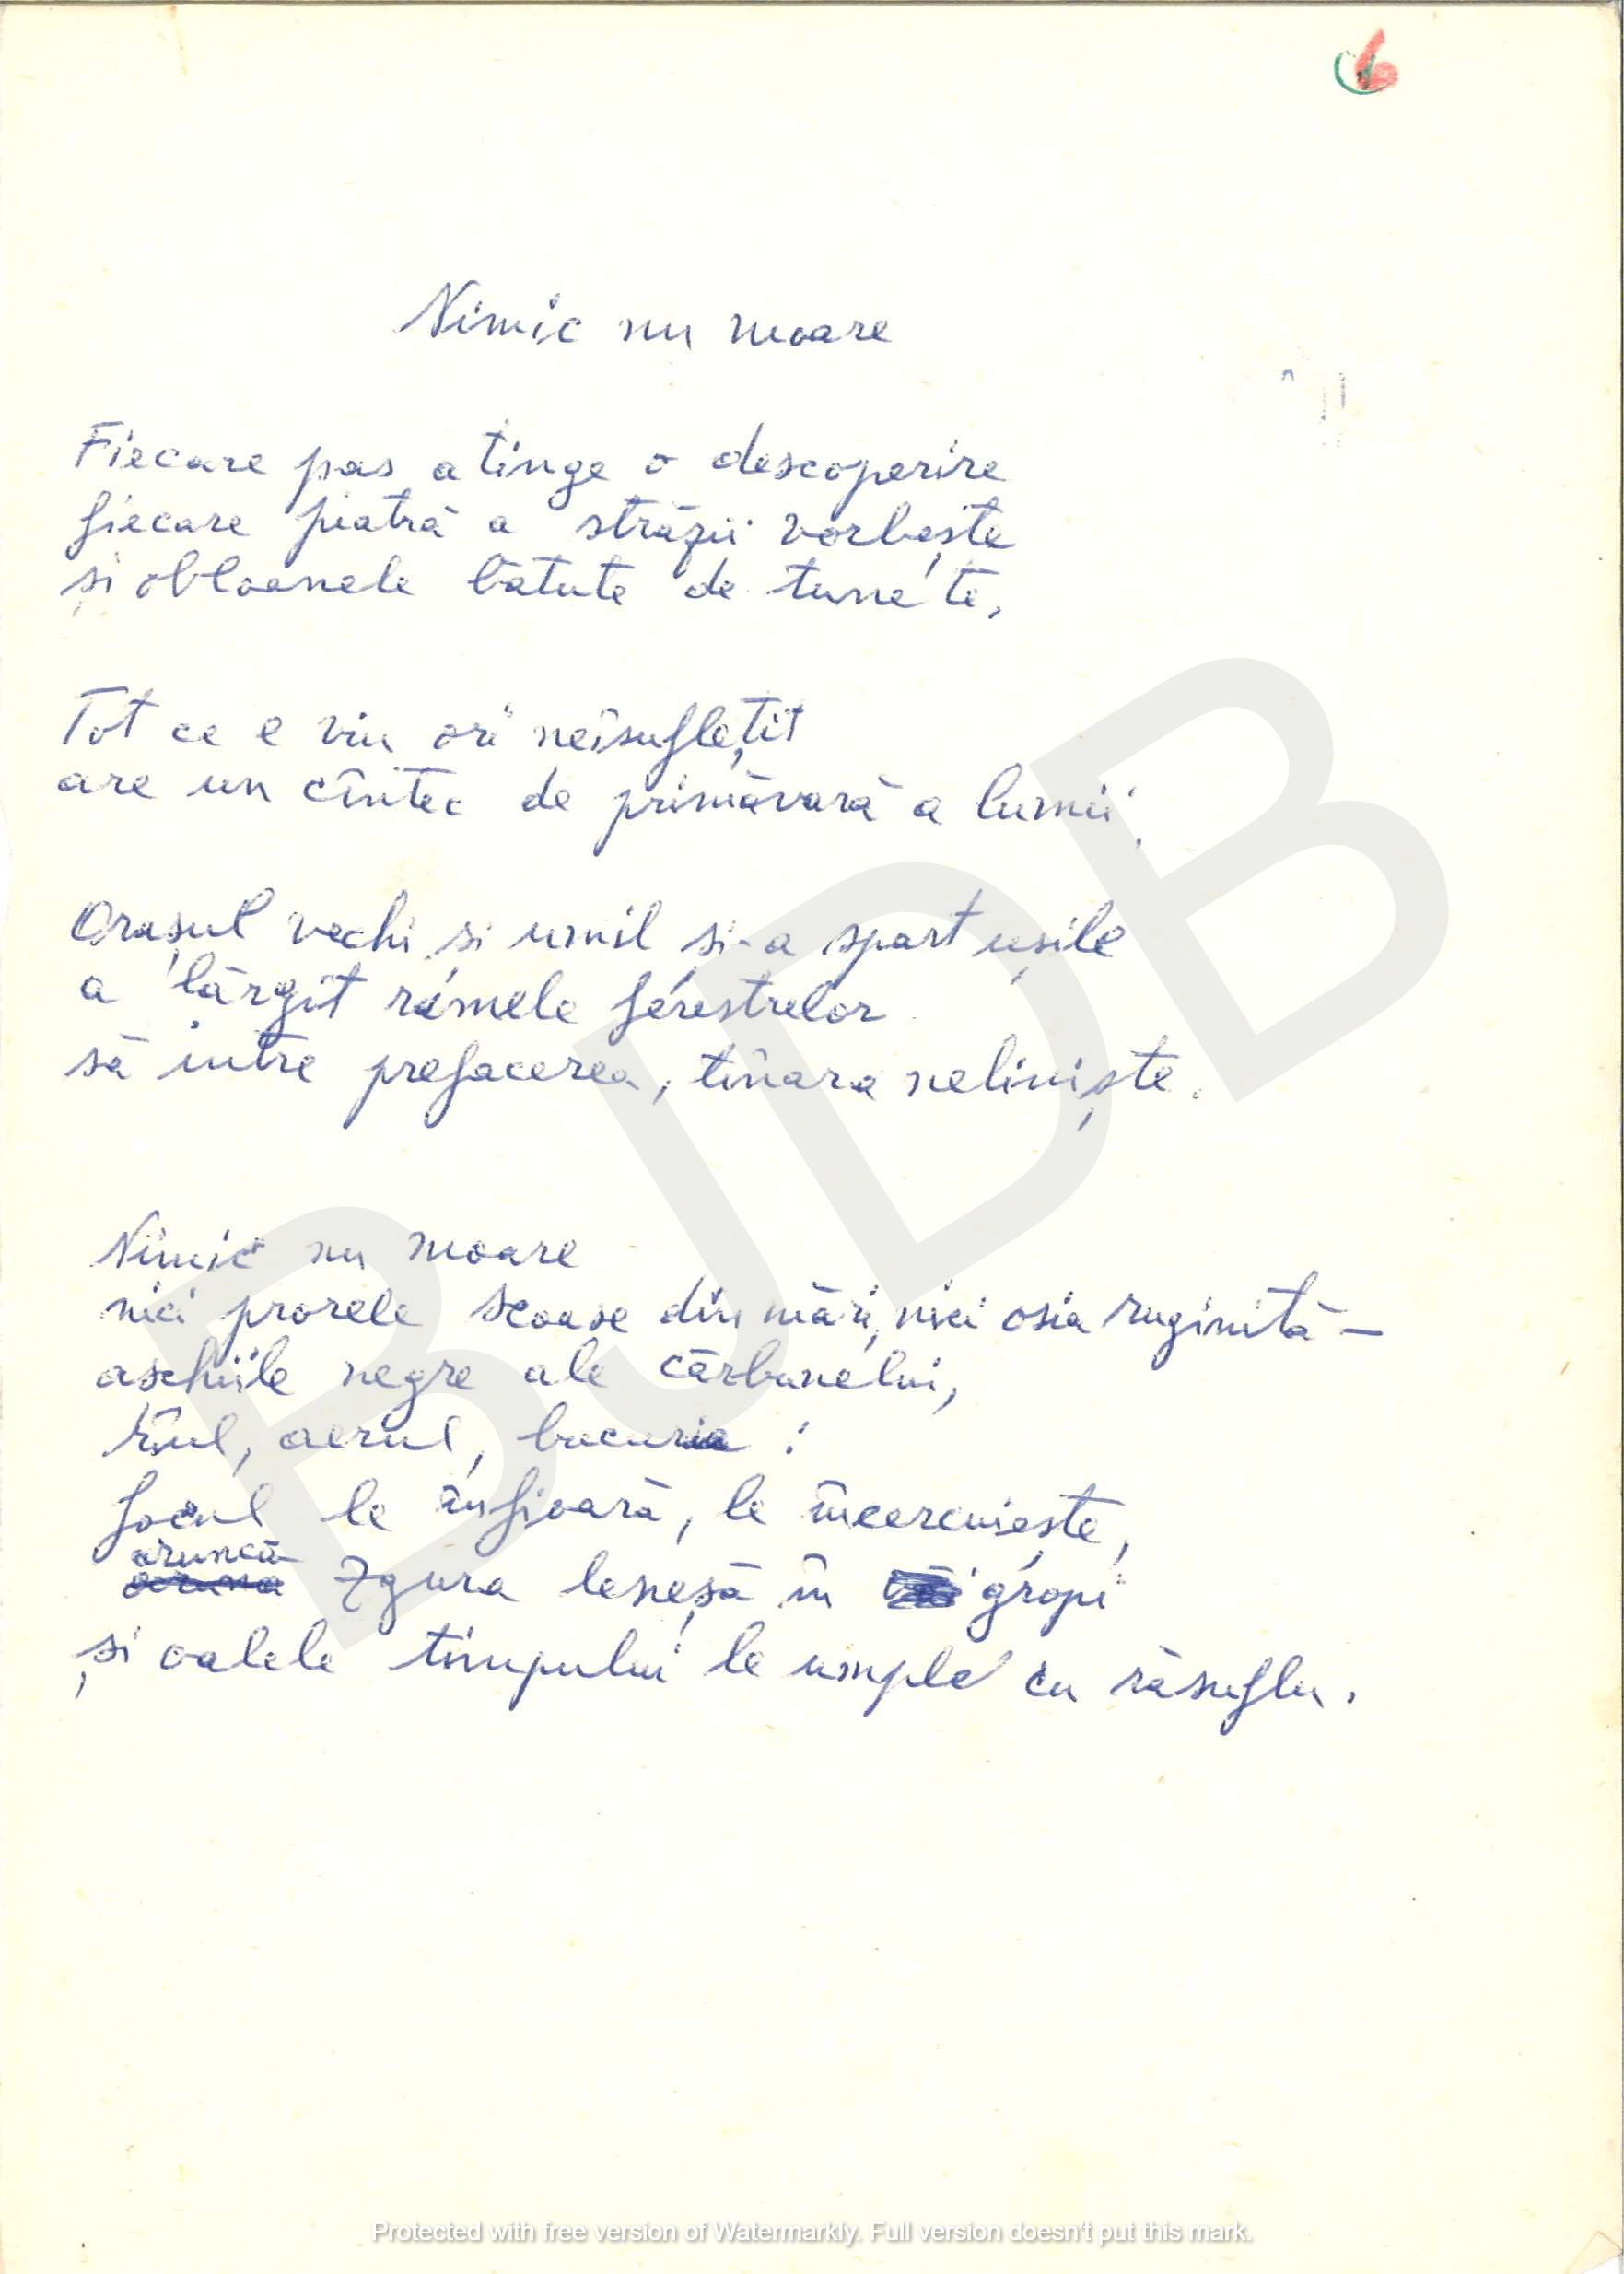 6
Nimic nu moare
Fiecare pas atinge o descoperire
fiecare piatră a străzii vorbește
și obloanele bătute de tunete.
Tot ce e viu ori neînsuflețit
are un cîntec de primăvară a lumii.
Orașul vechi și umil și-a spart ușile
a lărgit ramele ferestrelor
să intre prefacerea, tînăra neliniște.
Nimic nu moare
nici prorele scoase din mări, nici osia ruginită —
aschiile negre ale cărbunelui,
rîul, aerul, bucuria :
focul le înfioară, le încercuiește,
aruncă
zgura leneșă în gropi
și oalele timpului le umple cu răsuflu.
BJDB
Protected with free version of Watermarkly. Full version doesn't put this mark.